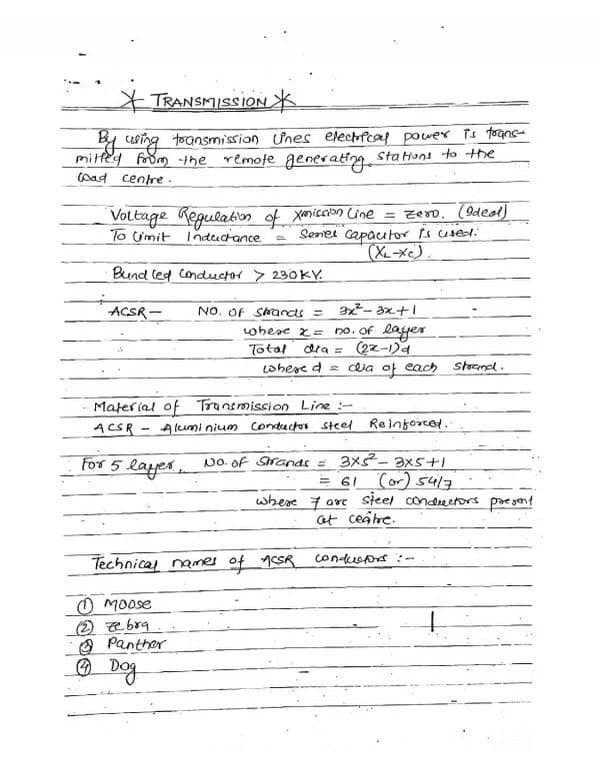 * TRANSMISSION *
By using transmission lines electrical power is trans-
mitted from the remote generating stations to the
load centre.
Voltage Regulation of Xmission Line = Zero. (Ideal)
To Limit Inductance = Series Capacitor is used.
(XL-Xc)
Bundled Conductor > 230KV.
ACSR — NO. OF Strands = 3x² - 3x + 1
where x = no. of layer
Total dia = (2x-1)d
where d = dia of each strand.
Material of Transmission Line :-
ACSR - Aluminium Conductor Steel Reinforced.
For 5 layer, No. of Strands = 3x5² - 3x5+1
= 61 (or) 54/7
where 7 are steel conductors present
at centre.
Technical names of ACSR conductors :-
① Moose
② Zebra
③ Panther
④ Dog